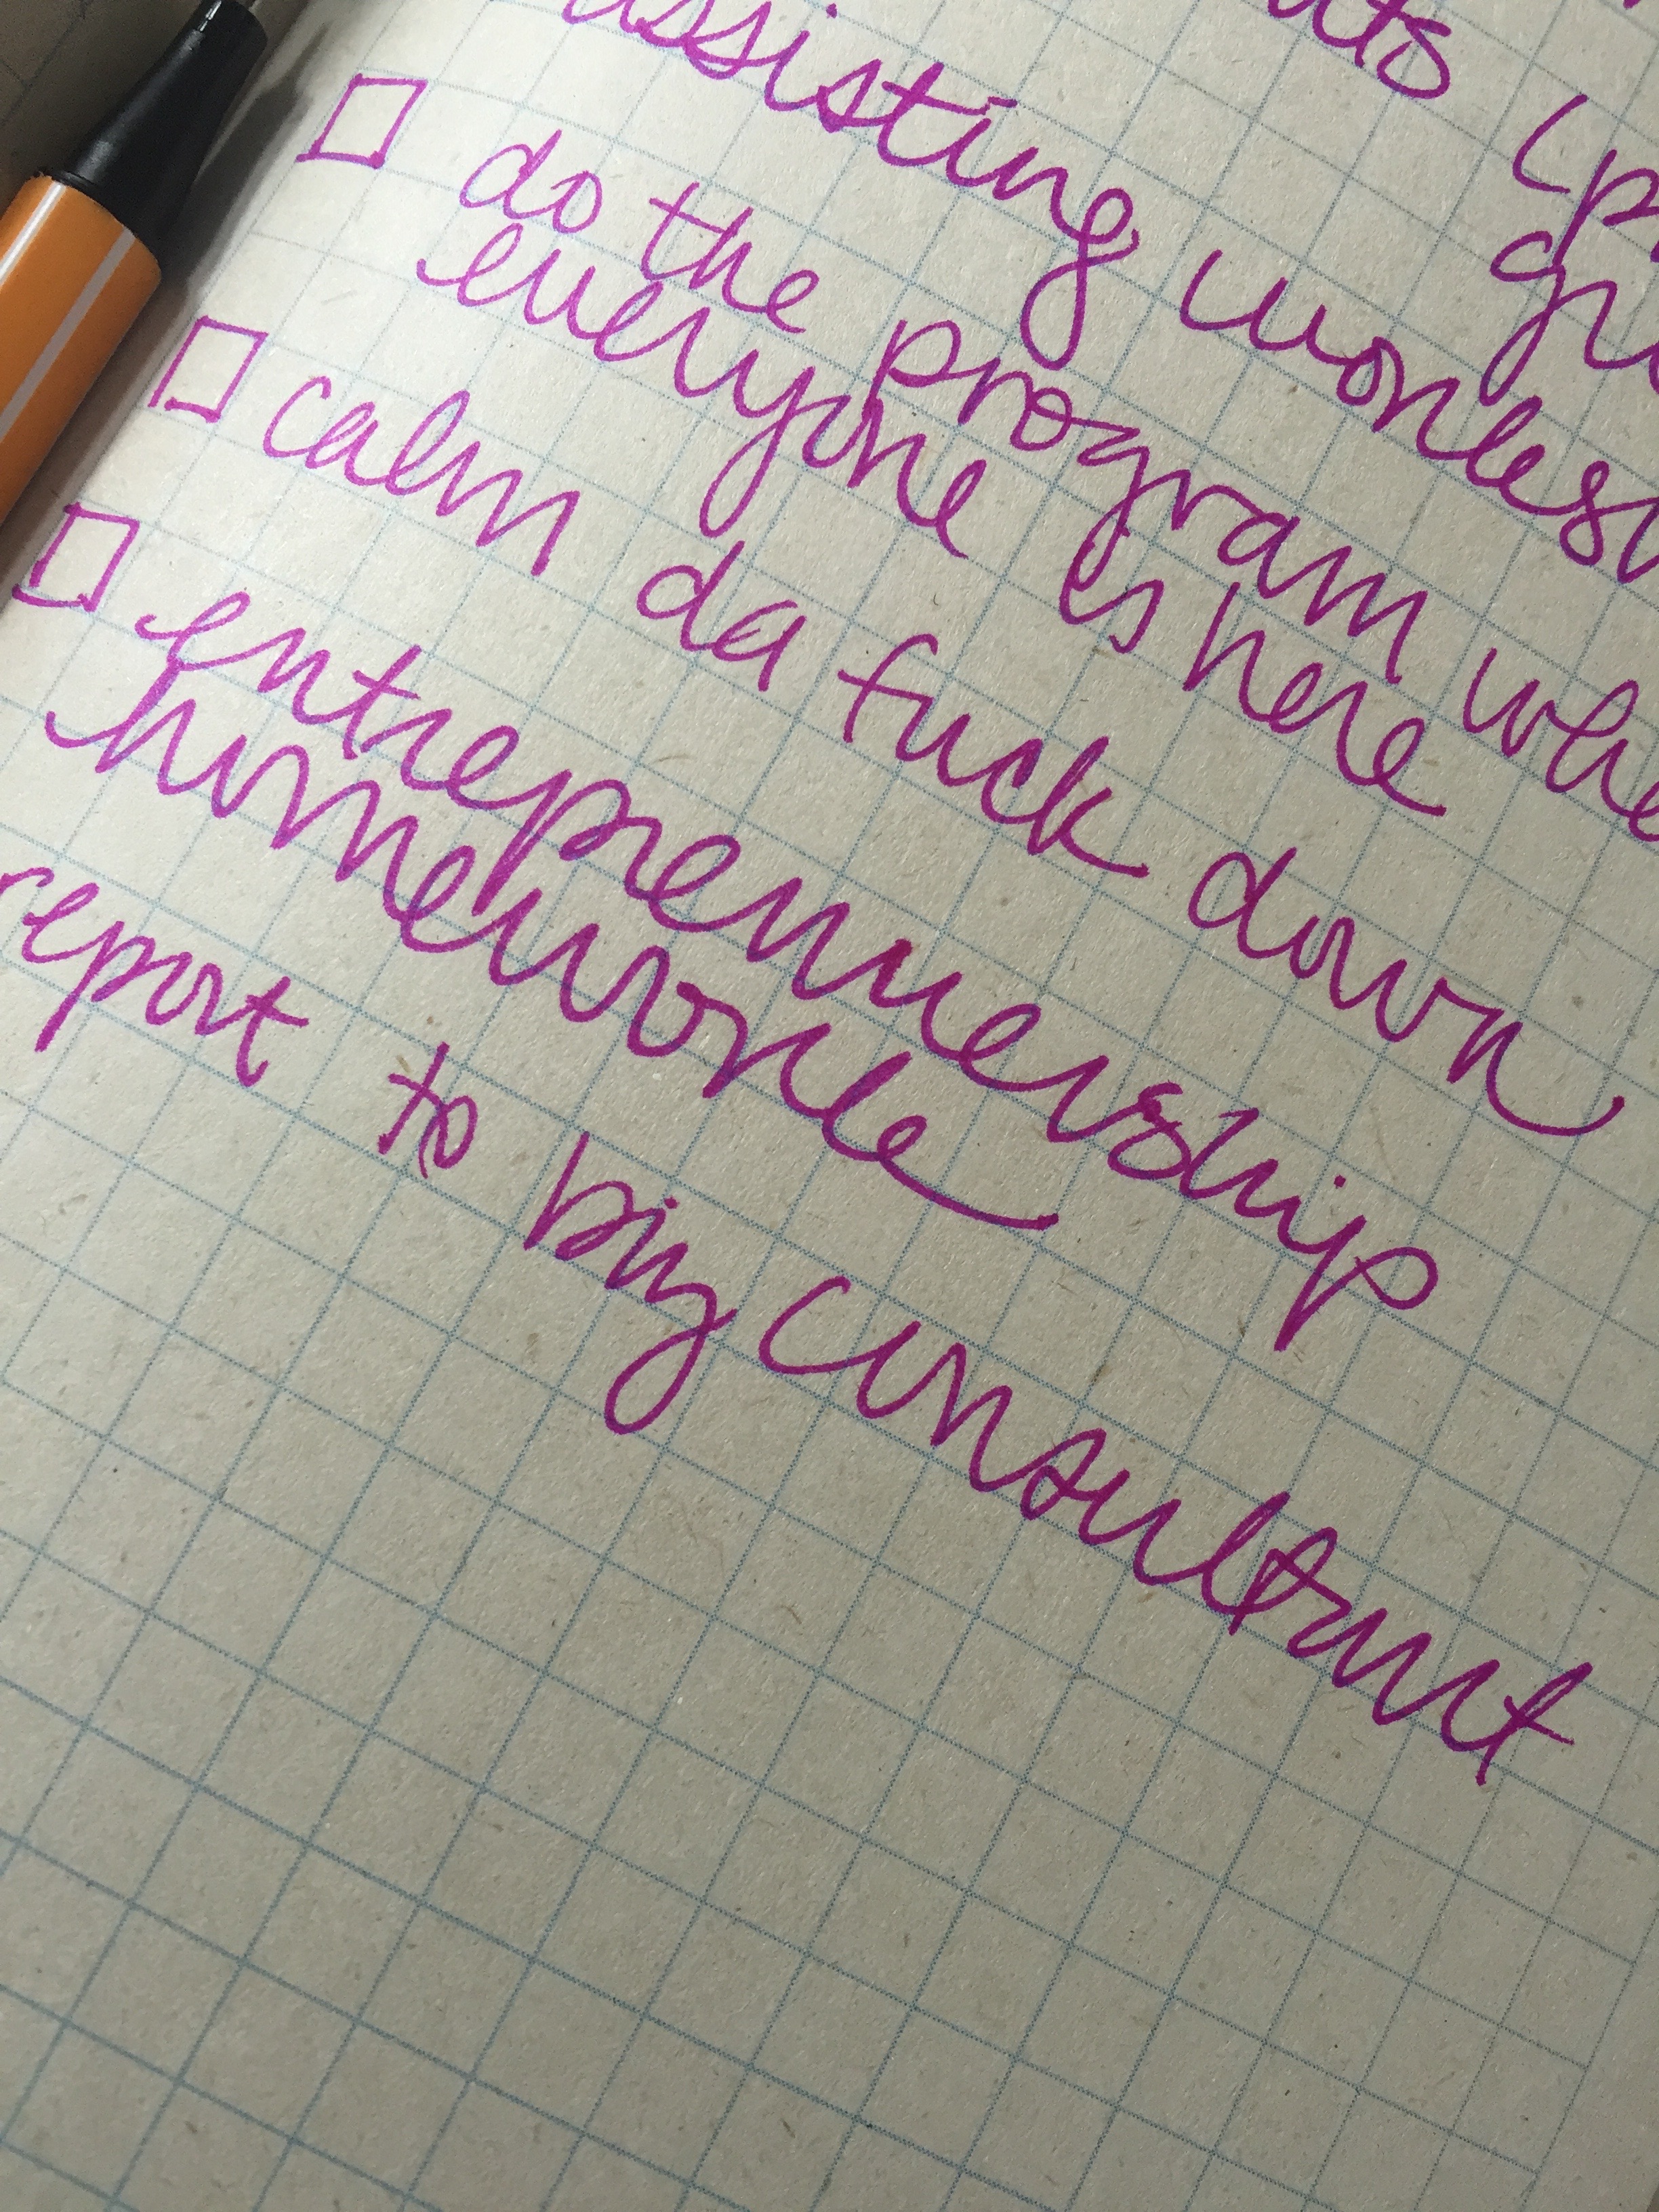 assisting
do the program
everyone is here
calm da fuck down
entreprenuership
homework
report to big consultant